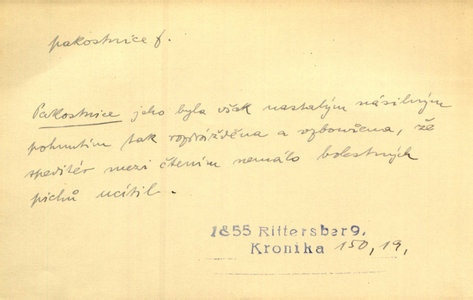 pakostnice f.
Pakostnice jeho byla však nastalým násilným
pohnutím tak rozdrážděna a vzbouřena, že
speditér mezi čtením nemálo bolestných
píchů ucítil.
1855 Rittersberg.
Kronika 150, 19,